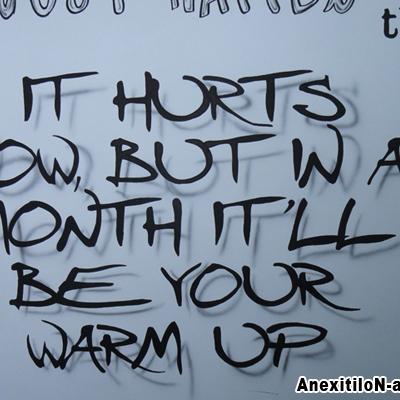 IT HURTS
OW, BUT IN A
MONTH IT'LL
BE YOUR
WARM UP
AnexitiloN-a